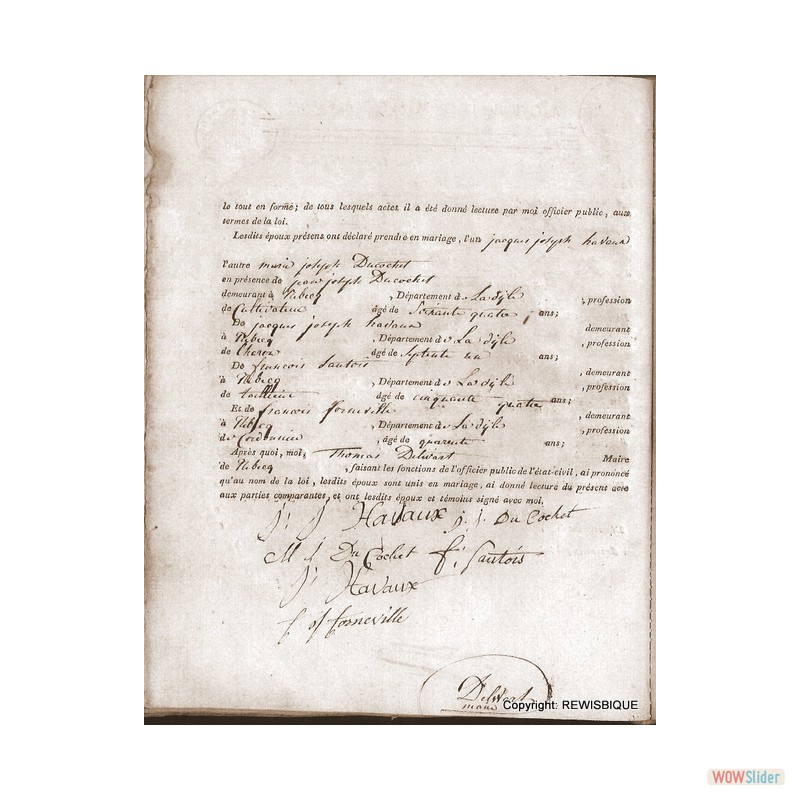 le tout en forme; de tous lesquels actes il a été donné lecture par moi officier public, aux
termes de la loi.
Lesdits époux présens ont déclaré prendre en mariage, l'un jacques joseph havaux
l'autre marie joseph Ducochet
en présence de jean joseph Ducochet
demeurant à Rebecq , Département de La dyle , profession
de Cultivateur âgé de Soixante quatre ans;
De jacques joseph havaux demeurant
à Rebecq , Département de La dyle , profession
de âgé de Septante un ans;
De francois Sautois , demeurant
à Rebecq , Département de La dyle , profession
de tailleur âgé de cinquante quatre ans;
Et de francois forneville , demeurant
à Rebecq , Département de La dyle , profession
de Cordonnier , âgé de quarente ans;
Après quoi, moi, Thomas Delwart Maire
de Rebecq , faisant les fonctions de l'officier public de l'état-civil, ai prononcé
qu'au nom de la loi, lesdits époux sont unis en mariage, ai donné lecture du présent acte
aux parties comparantes, et ont lesdits époux et témoins signé avec moi.
j. j Havaux j. j. Du Cochet
M j Du Cochet f. Sautois
j Havaux
f j forneville
Delwart
maire
Copyright: REWISBIQUE
WOWSlider